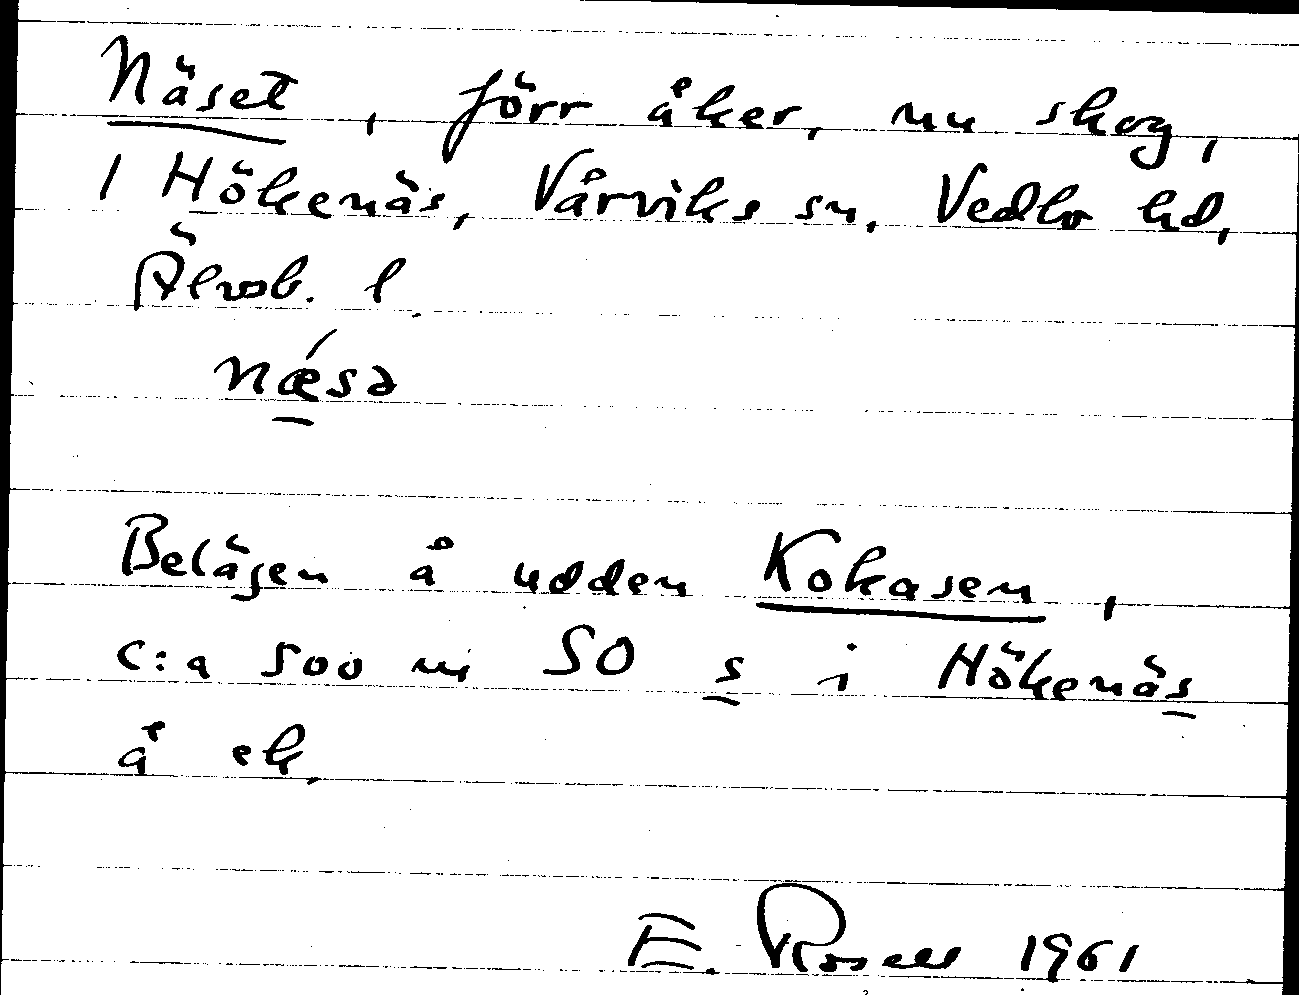 Näset, förr åker, nu skog,
1 Hökenäs, Vårviks sn, Vedbo hd,
Älvsb. l.
nǽ̱sə
Belägen å udden Kokasen,
c:a 500 m SO s i Hökenäs
å ek.
E. Rosell 1961